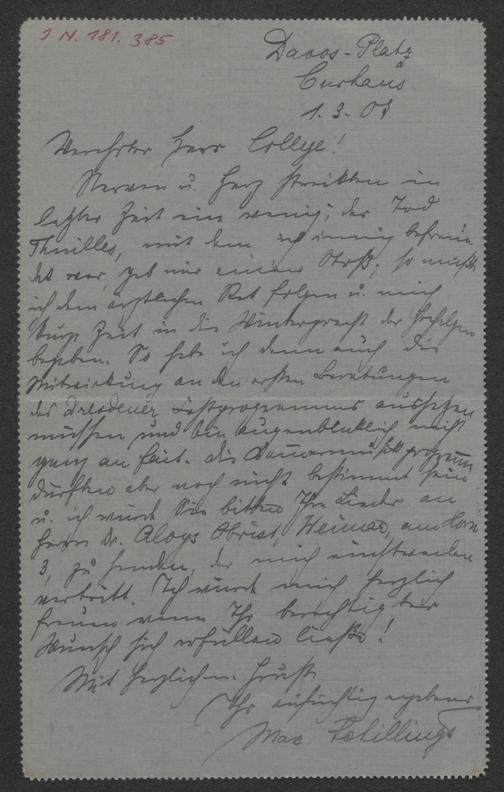 J.N. 181.385
Davos-Platz
Curhaus
1.3.07
Verehrter Herr College!
Nerven u. Herz streikten in
letzter Zeit ein wenig; der Tod
Thuilles, mit dem ich innig befreun-
det war, gab mir einen Stoß; so mußte
ich dem ärztlichen Rat folgen u. mich
kurze Zeit in die Winterpracht der Hochalpen
begeben. So habe ich denn auch die
Mitwirkung an den ersten Beratungen
des Dresdener Festprogramms aussetzen
müssen und bin augenblicklich nicht
ganz au fait. Die Kammermusikprogramme
dürften aber noch nicht bestimmt sein
u. ich würde Sie bitten Ihre Lieder an
Herrn Dr. Aloys Obrist, Weimar, am Horn
3, zu senden, der mich einstweilen
vertritt. Ich würde mich herzlich
freuen wenn Ihr berechtigter
Wunsch sich erfüllen ließe!
Mit herzlichem Gruße
Ihr aufrichtig ergebener
Max Schillings